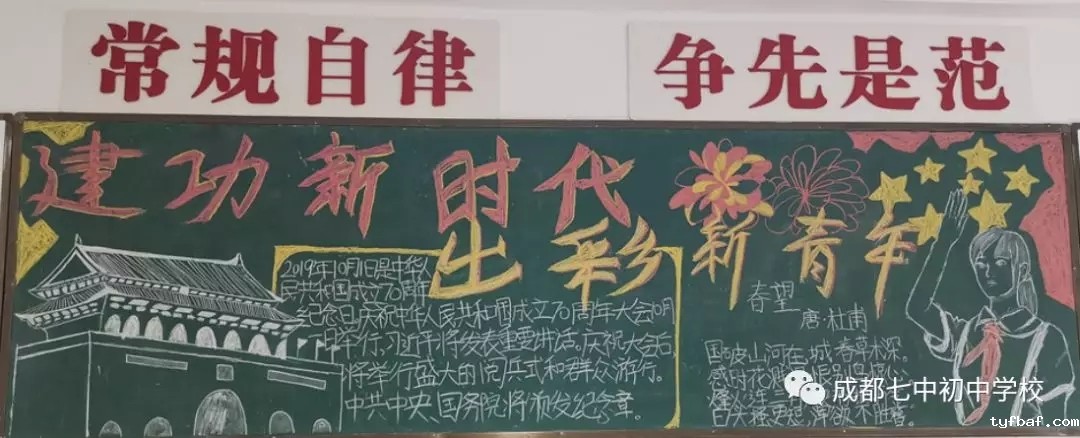 常规自律
争先是范
建功新时代
出彩新青年
2019年10月1日是中华人
民共和国成立70周年
纪念日,庆祝中华人民共和国成立70周年大会10月
1日举行,习近平将发表重要讲话,庆祝大会后
将举行盛大的阅兵式和群众游行。
中共中央、国务院将颁发纪念章。
春望
唐·杜甫
国破山河在,城春草木深。
感时花
白头搔更短,浑欲不胜簪。
成都七中初中学校
tyfbaf.com